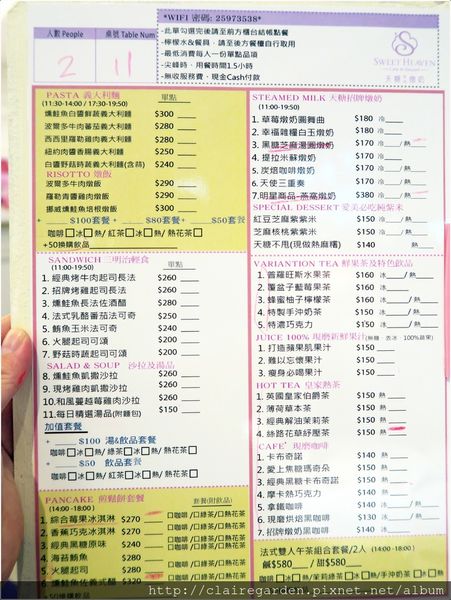 *WIFI 密碼: 25973538*
人數 People
桌號 Table Num
2
11
-此單勾選完後請至前方櫃台結帳點餐
-檸檬水&餐具，請至後方餐櫃自行取用
-最低消費每人一份單點品項
-尖峰時，用餐時間1.5小時
-無收服務費，現金Cash付款
SWEET HEAVEN
天糖
PASTA 義大利麵
(11:30-14:00 / 17:30-19:50) 單點
燻鮭魚白醬鮮蔬義大利麵 $300
波爾多牛肉蕃茄義大利麵 $280
西西里羅勒雞肉義大利麵 $280
紐約肉醬香腸義大利麵 $250
白醬野菇時蔬義大利麵(含蒜) $240
RISOTTO 燉飯
波爾多牛肉燉飯 $290
羅勒青醬雞肉燉飯 $290
挪威燻鮭魚焙根燉飯 $300
+ $100套餐 + $80套餐 + $50套餐
咖啡□冰□熱/ 紅茶□冰□熱/ 熱花茶□
+50換購飲品
SANDWICH 三明治輕食
(11:00-19:50) 單點
1. 經典烤牛肉起司長法 $260
2. 招牌烤雞起司長法 $240
3. 燻鮭魚長法佐酒醋 $280
4. 法式乳酪番茄法可奇 $240
5. 鮪魚玉米法可奇 $240
6. 火腿起司可頌 $200
7. 野菇時蔬起司可頌 $200
SALAD & SOUP 沙拉及湯品
8. 燻鮭魚凱撒沙拉 $260
9. 現烤雞肉凱撒沙拉 $260
10. 和風蔓越莓雞肉沙拉 $260
11. 每日精選湯品(附麵包) $150
加值套餐
+ $100 湯&飲品套餐
咖啡□冰□熱/ 綠茶□冰□熱/ 熱花茶□
+ $50 飲品套餐
咖啡□冰□熱/ 紅茶□冰□熱/ 熱花茶□
PANCAKE 煎鬆餅套餐
(14:00 -18:00 ) 套餐(附飲品)
1. 綜合莓果冰淇淋 $270 □咖啡/□綠茶/□熱花茶
2. 香蕉巧克冰淇淋 $270 □咖啡/□綠茶/□熱花茶
3. 經典黑糖原味 $240 □咖啡/□綠茶/□熱花茶
4. 海苔鮪魚 $280 □咖啡/□紅茶/□熱花茶
5. 火腿起司 $270 □咖啡/□紅茶/□熱花茶
6. 燻鮭魚佐義式醋 $320 □咖啡/□紅茶/□熱花茶
STEAMED MILK 天糖招牌燉奶
1. 草莓燉奶圓舞曲 $180 冷
2. 幸福雜糧白玉燉奶 $180 冷
3. 黑糖芝麻湯圓燉奶 $170 冷 / 熱
4. 提拉米蘇燉奶 $170 冷
5. 炭焙咖啡燉奶 $170 冷 / 熱
6. 天使三重奏 $170 冷 / 熱
7. 明星商品-燕窩燉奶 $180 冷 / 熱
SPECIAL DESSERT 愛美必吃純紫米
紅豆芝麻紫紫米 $150 冷 / 熱
芝麻核桃紫紫米 $150 冷 / 熱
天糖不甩(現做熱麻糬) $140 熱
VARIANTION TEA 鮮果茶及特色飲品
1. 普羅旺斯水果茶 $160 冰 / 熱
2. 覆盆子藍莓果茶 $160 冰 / 熱
3. 蜂蜜柚子檸檬茶 $160 冰 / 熱
4. 特製手沖奶茶 $150 冰 / 熱
5. 特濃巧克力 $150 冰 / 熱
JUICE 100% 現磨新鮮果汁
1. 打造蘋果肌果汁 $150
2. 難以忘懷果汁 $150
3. 瘦身必喝果汁 $150
HOT TEA 皇家熱茶
1. 英國皇家伯爵茶 $150 熱
2. 薄荷草本茶 $150 熱
3. 經典解油茉莉茶 $150 熱
4. 絲路花草紓壓茶 $150 熱
CAFE´ 現磨咖啡
1. 卡布奇諾 $140 冰 / 熱
2. 愛上焦糖瑪奇朵 $150 冰 / 熱
3. 經典黑糖卡布奇諾 $150 冰 / 熱
4. 摩卡熱巧克力 $140 冰 / 熱
5. 拿鐵咖啡 $140 冰 / 熱
6. 現磨烘焙黑咖啡 $130 冰 / 熱
7. 招牌燉奶黑咖啡 $140 冰
法式雙人午茶組合套餐/2人 (14:00 -18:00)
鹹$580 / 甜$580
咖啡□冰□熱/茉莉綠茶□冰□熱/手沖奶茶□冰□熱
http://clairegarden.pixnet.net/album